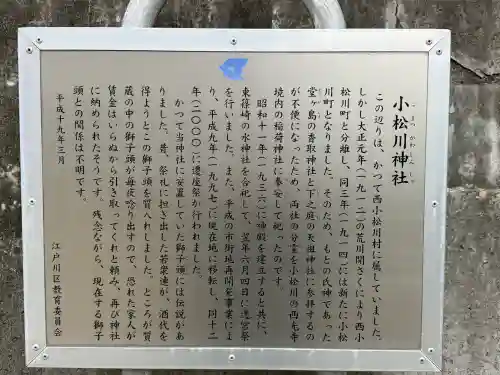 小松川神社
こまつがわじんじゃ
この辺りは、かつて西小松川村に属していました。
しかし大正元年（一九一二）の荒川開さくにより西小
松川町と分離し、同三年（一九一四）には新たに小松
川町となりました。そのため、もとの氏神であった
堂ヶ島の香取神社と下之庭の天祖神社に参拝するの
が不便になったため、両社の分霊を小松川の西光寺
境内の稲荷神社に奉安して祀ったのです。
昭和十一年（一九三六）に神殿を建立すると共に、
東篠崎の水神社を合祀して、翌年六月四日に遷宮祭
を行いました。また、平成の市街地再開発事業によ
り、平成九年（一九九七）に現在地に移転し、同十二
年（二〇〇〇）に遷座祭が行われました。
かつて当神社に安置していた獅子頭には伝説があ
りました。昔、祭礼に担ぎ出した若衆連が、酒代を
得ようとこの獅子頭を質入れしました。ところが質
蔵の中の獅子頭が毎夜唸り出すので、恐れた家人が
賃金はいらぬから引き取ってくれと頼み、再び神社
に納められたそうです。残念ながら、現在する獅子
頭との関係は不明です。
平成十九年三月
江戸川区教育委員会